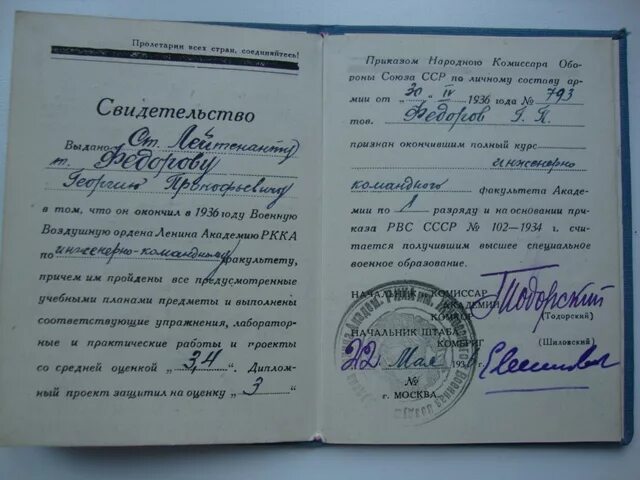 Пролетарии всех стран, соединяйтесь!
Свидетельство
Выдано Ст. Лейтенанту
т. Федорову
Георгию Прокофьевичу
в том, что он окончил в 1936 году Военную
Воздушную ордена Ленина Академию РККА
по инженерно-командному факультету,
причем им пройдены все предусмотренные
учебными планами предметы и выполнены
соответствующие упражнения, лаборатор-
ные и практические работы и проекты
со средней оценкой „3,4“. Диплом-
ный проект защитил на оценку „3“
Приказом Народного Комиссара Обо-
роны Союза ССР по личному составу ар-
мии от „30“ IV 1936 года № 793
тов. Федоров Г. П.
признан окончившим полный курс
инженерно
командного факультета Академ-
ии по 1 разряду и на основании при-
каза РВС СССР № 102—1934 г. счи-
тается получившим высшее специальное
военное образование.
НАЧАЛЬНИК И КОМИССАР
АКАДЕМИИ
КОМКОР Тодорский
(Тодорский)
НАЧАЛЬНИК ШТАБА
КОМБРИГ
(Шиловский)
22 Мая 1936
№
г. МОСКВА